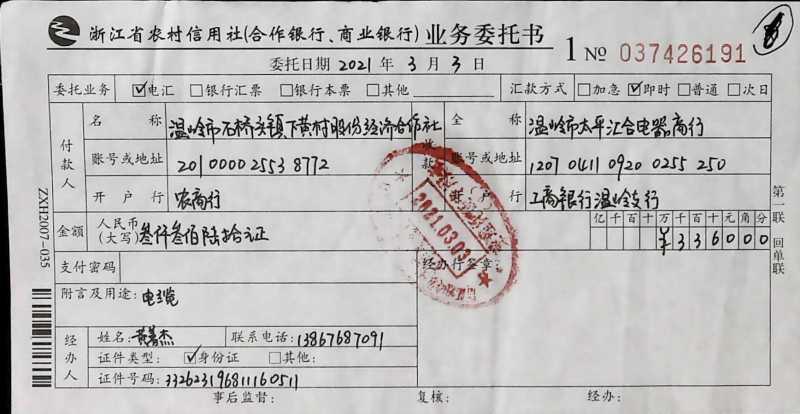 浙江省农村信用社(合作银行、商业银行) 业务委托书
1 № 037426191
委托日期 2021 年 3 月 3 日
委托业务 ☑电汇 □银行汇票 □银行本票 □其他 汇款方式 □加急 ☑即时 □普通 □次日
付款人 名称 温岭市石桥头镇下黄村股份经济合作社 收款人 全称 温岭市太平汇合电器商行
账号或地址 201 0000 2553 8772 账号或地址 1207 0411 0920 0255 250
开户行 农商行 开户行 工商银行温岭支行
金额 人民币(大写) 叁仟叁佰陆拾元正 亿千百十万千百十元角分
¥336000
支付密码 经办行签章:
2021.03.03
附言及用途: 电缆
经办人 姓名: 黄善杰 联系电话: 13867687091
证件类型: ☑身份证 □其他:
证件号码: 332623196811160511
事后监督: 复核: 经办:
ZXH2007-035
第一联 回单联